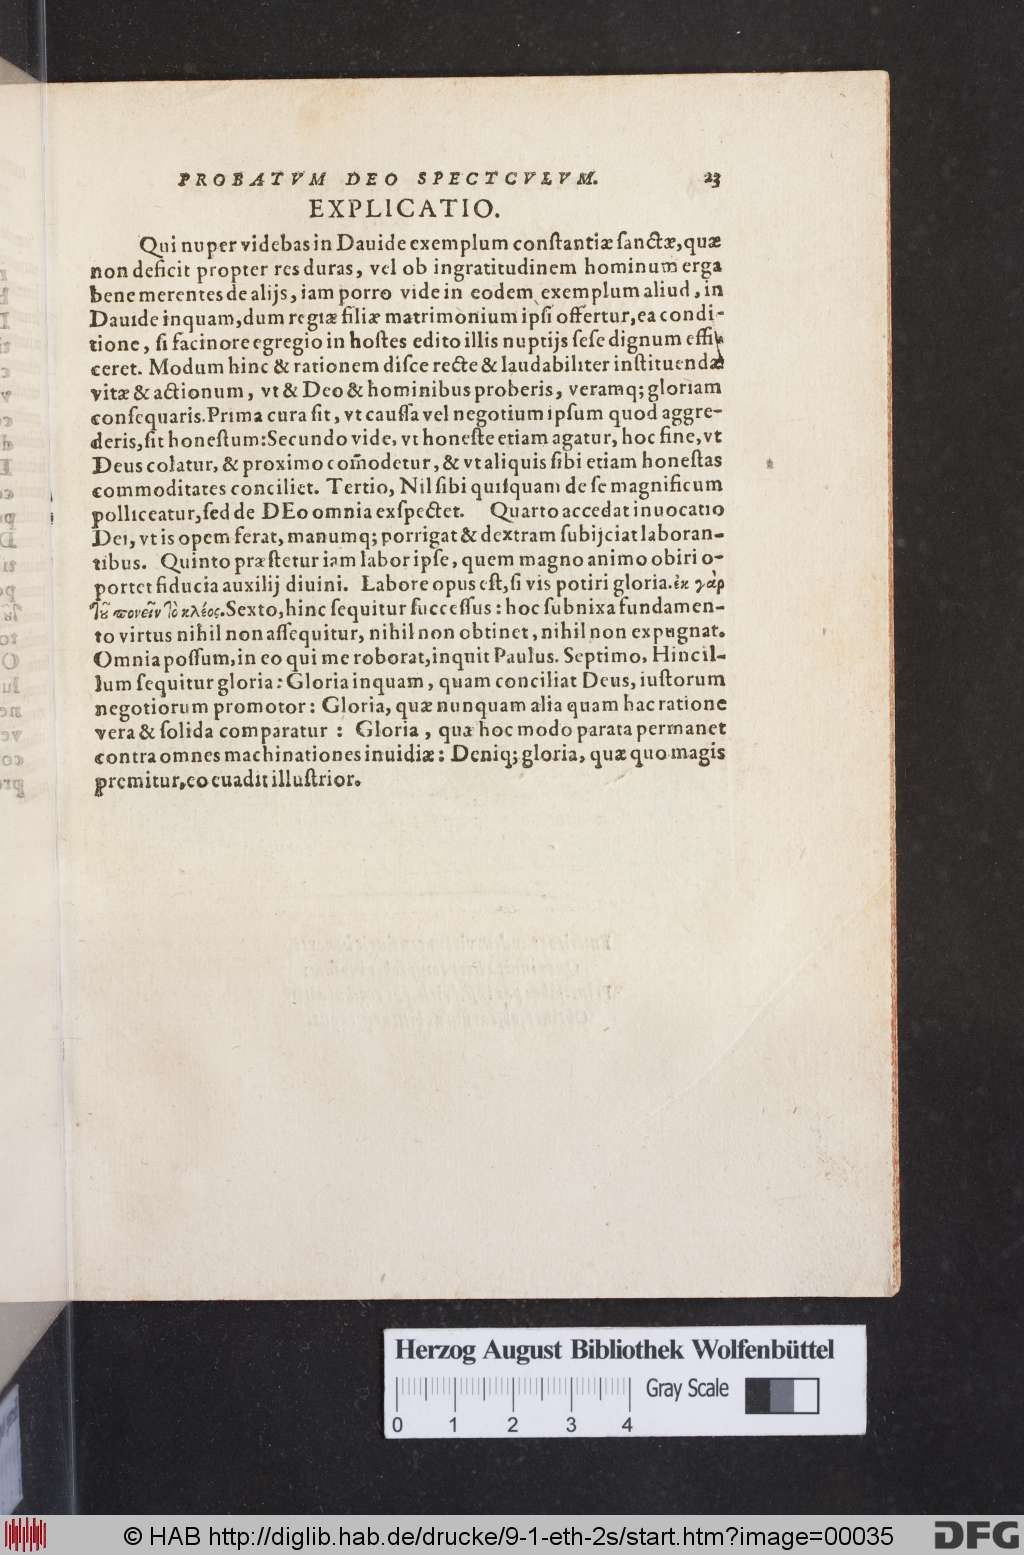 PROBATVM DEO SPECTCVLVM. 23
EXPLICATIO.
Qui nuper videbas in Dauide exemplum conſtantiæ ſanctæ, quæ
non deficit propter res duras, vel ob ingratitudinem hominum erga
bene merentes de alijs, iam porro vide in eodem exemplum aliud, in
Dauide inquam, dum regiæ filiæ matrimonium ipſi offertur, ea condi-
tione, ſi facinore egregio in hoſtes edito illis nuptijs ſeſe dignum effi-
ceret. Modum hinc & rationem diſce recte & laudabiliter inſtituendæ
vitæ & actionum, vt & Deo & hominibus proberis, veramq; gloriam
conſequaris. Prima cura ſit, vt cauſſa vel negotium ipſum quod aggre-
deris, ſit honeſtum: Secundo vide, vt honeſte etiam agatur, hoc fine, vt
Deus colatur, & proximo com̃odetur, & vt aliquis ſibi etiam honeſtas
commoditates conciliet. Tertio, Nil ſibi quiſquam de ſe magnificum
polliceatur, ſed de DEo omnia exſpectet. Quarto accedat inuocatio
Dei, vt is opem ferat, manumq; porrigat & dextram ſubijciat laboran-
tibus. Quinto præſtetur iam labor ipſe, quem magno animo obiri o-
portet fiducia auxilij diuini. Labore opus eſt, ſi vis potiri gloria. ἐκ γὰρ
τοῦ πονεῖν τὸ κλέος. Sexto, hinc ſequitur ſucceſſus: hoc ſubnixa fundamen-
to virtus nihil non aſſequitur, nihil non obtinet, nihil non expugnat.
Omnia poſſum, in eo qui me roborat, inquit Paulus. Septimo, Hinc il-
lum ſequitur gloria: Gloria inquam, quam conciliat Deus, iuſtorum
negotiorum promotor: Gloria, quæ nunquam alia quam hac ratione
vera & ſolida comparatur: Gloria, quæ hoc modo parata permanet
contra omnes machinationes inuidiæ: Deniq; gloria, quæ quo magis
premitur, eo euadit illuſtrior.
Herzog August Bibliothek Wolfenbüttel
Gray Scale
0 1 2 3 4
© HAB http://diglib.hab.de/drucke/9-1-eth-2s/start.htm?image=00035
DFG